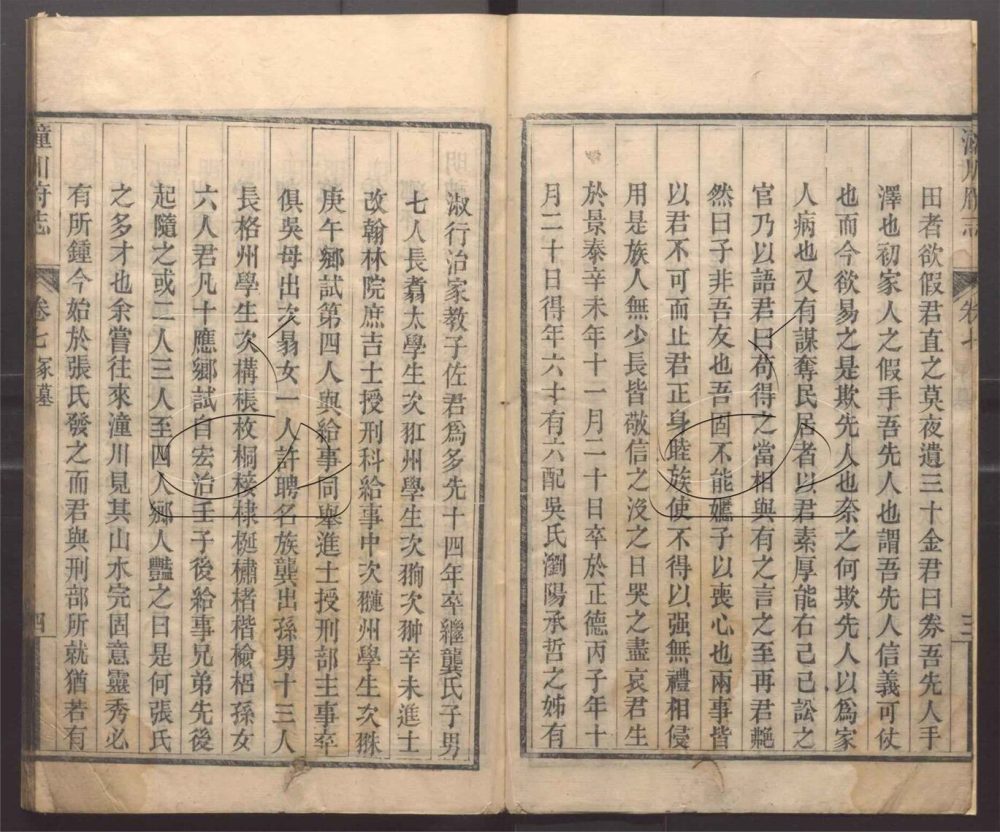 田者欲假君直之莫夜遺三十金君曰券吾先人手
澤也初家人之假手吾先人也謂吾先人信義可仗
也而今欲易之是欺先人也奈之何欺先人以為家
人病也又有謀奪民居者以君素厚能右己己訟之
官乃以語君曰苟得之當相與有之言之至再君艴
然曰子非吾友也吾固不能嫗子以喪心也兩事皆
以君不可而止君正身睦族使不得以强無禮相侵
用是族人無少長皆敬信之沒之日哭之盡哀君生
於景泰辛未年十一月二十日卒於正德丙子年十
月二十日得年六十有六配吳氏瀏陽承哲之姊有
淑行治家教子佐君爲多先十四年卒繼龔氏子男
七人長翥太學生次羾州學生次䎓次翀辛未進士
改翰林院庶吉士授刑科給事中次䎙州學生次䎘
庚午鄉試第四人與給事同舉進士授刑部主事卒
俱吳母出次翯女一人許聘名族龔出孫男十三人
長格州學生次構棖枚桐桜棣梴橚楮楷檢梠孫女
六人君凡十應鄉試自宏治壬子後給事兄弟先後
起隨之或二人三人至四人鄉人豔之曰是何張氏
之多才也余嘗往來潼川見其山水完固意靈秀必
有所鍾今始於張氏發之而君與刑部所就猶若有
潼川府志
卷七
冢墓
四